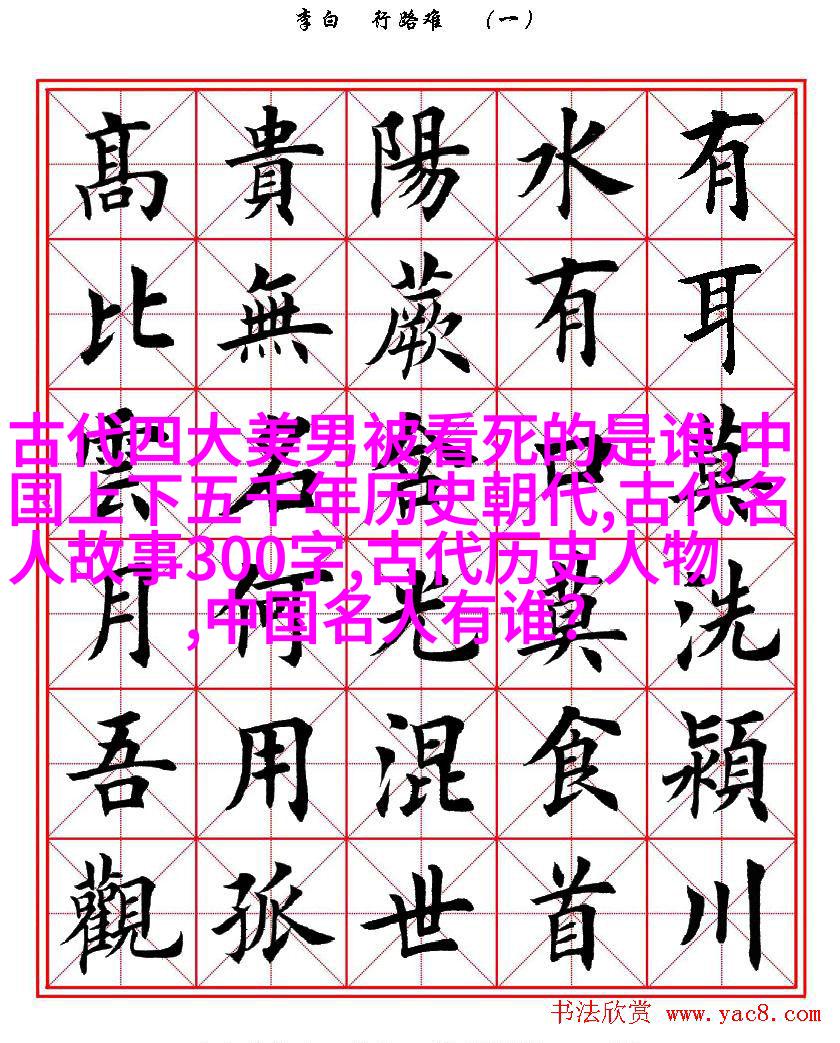 李白 行路难 （一）
有耳莫洗潁川
水有口莫食首
陽蕨含光混世
貴無名何用孤
髙比雲月吾觀
古代四大美男被看死的是谁,中
国上下五千年历史朝代,古代名
人故事300字,古代历史人物
,中国名人有谁?
书法欣赏 www.yac8.com